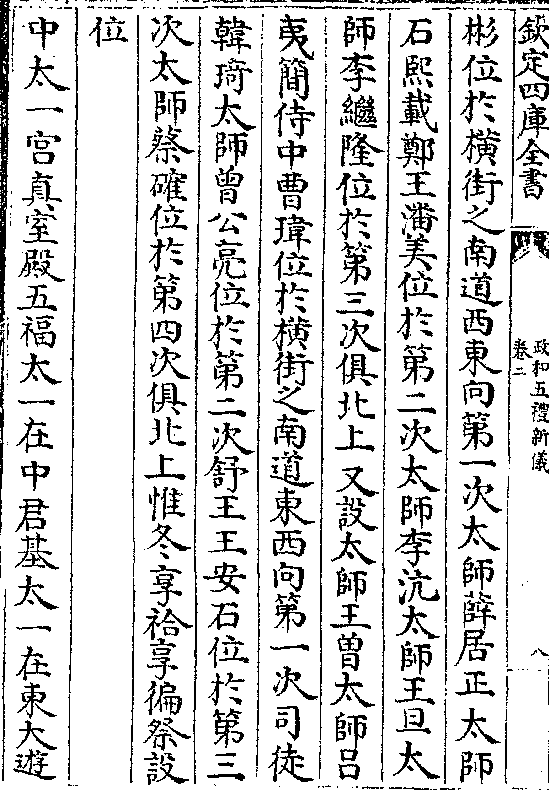 欽定四庫全書
政和五禮新儀
卷二
八
彬位於橫街之南道西東向第一次太師薛居正太師
石熙載鄭王潘美位於第二次太師李沆太師王旦太
師李繼隆位於第三次俱北上又設太師王曾太師吕
夷簡侍中曹瑋位於橫街之南道東西向第一次司徒
韓琦太師曾公亮位於第二次舒王王安石位於第三
次太師蔡確位於第四次俱北上惟冬享祫享徧祭設
位
中太一宫真室殿五福太一在中君基太一在東大遊